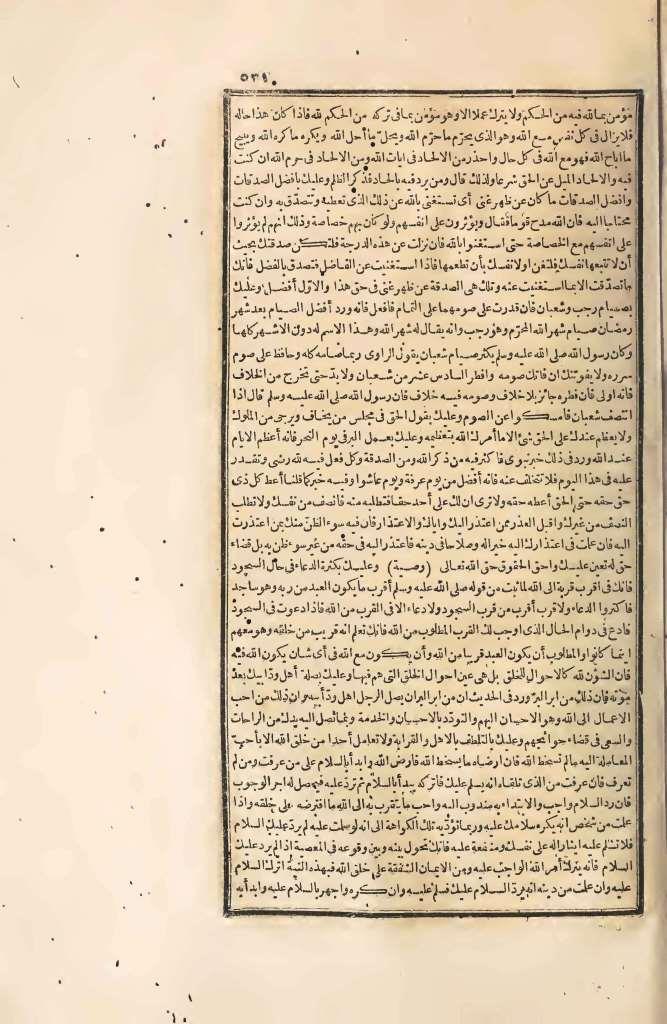 ٥٣٩
مؤمن بما لله فيه من الحكم ولا يترك عملا الا وهو مؤمن بما فى تركه من الحكم لله فاذا كان هذا حاله
فلا يزال فى كل نفس مع الله وهو الذى يحرّم ما حرّم الله ويحلّ ما أحل الله ويكره ما كره الله ويبيح
ما اباح الله فهو مع الله فى كل حال واحذر من الالحاد فى ايات الله ومن الالحاد فى حرم الله ان كنت
فيه والالحاد الميل عن الحق شرعا ولذلك قال ومن يرد فيه بالحاد فذكر الظلم وعليك بافضل الصدقات
وافضل الصدقات ما كان عن ظهر غنى أى تستغنى بالله عن ذلك الذى تعطيه وتتصدّق به وان كنت
محتاجا اليه فان الله مدح قوما فقال ويؤثرون على انفسهم ولو كان بهم خصاصة وذلك انهم لم يؤثروا
على انفسهم مع الخصاصة حتى استغنوا بالله فان نزلت عن هذه الدرجة فلتكن صدقتك بحيث
أن لا تتبعها نفسك فلتغن اولا نفسك بأن تطعمها فاذا استغنيت عن الفاضل فتصدق بالفضل فانك
ما تصدّقت الا بما استغنيت عنه وتلك هى الصدقة عن ظهر غنى فى حق هذا والاول أفضل وعليك
بصيام رجب وشعبان فان قدرت على صومهما على التمام فافعل فانه ورد أفضل الصيام بعد شهر
رمضان صيام شهر الله المحرّم وهو رجب وانه يقال له شهر الله وهذا الاسم له دون الاشهر كلها
وكان رسول الله صلى الله عليه وسلم يكثر صيام شعبان يقول الراوى ربما صامه كله وحافظ على صوم
سرره ولا يفوتنك ان فاتك صومه وافطر السادس عشر من شعبان ولا بدّ حتى تخرج من الخلاف
فانه اولى فان فطره جائز بلا خلاف وصومه فيه خلاف فان رسول الله صلى الله عليه وسلم قال اذا
انتصف شعبان فامسكوا عن الصوم وعليك بقول الحق فى مجلس من يخاف ويرجى من الملوك
ولا يعظم عندك على الحق شئ الا ما أمرك الله بتعظيمه وعليك بعمل البر فى يوم النحر فانه أعظم الايام
عند الله ورد فى ذلك خبر نبوى فاكثر فيه من ذكر الله ومن الصدقة وكل فعل فيه لله رضى وتقدر
عليه فى هذا اليوم فلا تتخلف عنه فانه أفضل من يوم عرفة ويوم عاشورا وفيه خبر كما قلنا أعط كل ذى
حق حقه حتى الحق أعطه حقه ولا ترى ان لك على أحد حقا فتطلبه منه فانصف من نفسك ولا تطلب
النصف من غيرك واقبل العذر ممن اعتذر اليك واياك والاعتذار فان فيه سوء الظن منك بمن اعتذرت
اليه فان علمت فى اعتذارك اليه خير اله وصلاحا فى دينه فاعتذر اليه فى حقه من غير سوء ظن به بل قضاء
حق له تعين عليك واحق الحقوق حق الله تعالى (وصية) وعليك بكثرة الدعاء فى حال السجود
فانك فى اقرب قربة الى الله لما ثبت من قوله صلى الله عليه وسلم أقرب ما يكون العبد من ربه وهو ساجد
فاكثروا الدعاء ولا قرب أقرب من قرب السجود ولا دعاء الا فى القرب من الله فاذا دعوت فى السجود
فادع فى دوام الحال الذى اوجب لك القرب المطلوب من الله فانك تعلم انه قريب من خلقه وهو معهم
اينما كانوا والمطلوب أن يكون العبد قريبا من الله وأن يكون مع الله فى أى شان يكون الله فيه
فان الشؤن لله كالاحوال للخلق بل هى عين احوال الخلق التى هم فيها وعليك بصلة أهل ودّ ابيك بعد
موته فان ذلك من ابر البر ورد فى الحديث ان من ابر البر أن يصل الرجل اهل ودّ أبيه وان ذلك من احب
الاعمال الى الله وهو الاحسان اليهم والتودّد بالاحسان والخدمة وبما تصل اليه يدك من الراحات
والسعى فى قضاء حوائجهم وعليك بالتلطف بالاهل والقرابة ولا تعامل أحدا من خلق الله الا بأحب
المعاملة اليه ما لم تسخط الله فان ارضاه ما يسخط الله فارض الله وابدأ بالسلام على من عرفت ومن لم
تعرف فان عرفت من الذى تلقاه انه يسلم عليك فاتركه يبدأ بالسلام ثم تردّ عليه فيحصل له اجر الوجوب
فان ردّ السلام واجب والابتداء به مندوب اليه واحب ما يتقرب به الى الله ما افترضه على خلقه واذا
علمت من شخص انه يكره سلامك عليه وربما تؤدّيه تلك الكراهة الى انه لو سلمت عليه لم يردّ عليك السلام
فلا تسلم عليه ايثارا له على نفسك وشفقة عليه فانك تحول بينه وبين وقوعه فى المعصية اذا لم يرد عليك
السلام فانه يترك أمر الله الواجب عليه ومن الايمان الشفقة على خلق الله فبهذه النية اترك السلام
عليه وان علمت من دينه انه يردّ السلام عليك فسلم عليه وان كره واجهر بالسلام عليه وابدأ به